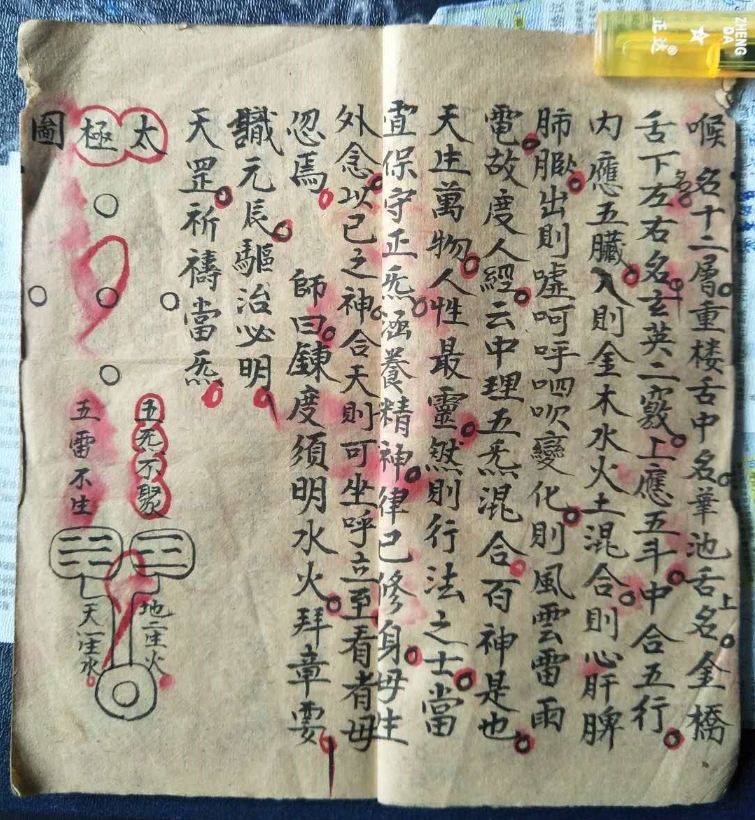 喉名十二層重楼舌中名華池舌上名金橋
舌下左右名玄英二竅上應五斗中合五行
内應五臟入則金木水火土混合則心肝脾
肺腎出則噓呵呼呬吹變化則風雲雷雨
電故度人經云中理五炁混合百神是也
天生萬物人性最靈然則行法之士當
宜保守正炁涵養精神律己修身毋生
外念以己之神合天則可坐呼立至看者毋
忽焉 師曰鍊度須明水火拜章要
識元辰驅治必明
天罡祈禱當炁
太極圖
五炁不聚
五雷不生
地二生火
天一生水
ZHENG DA
正达®